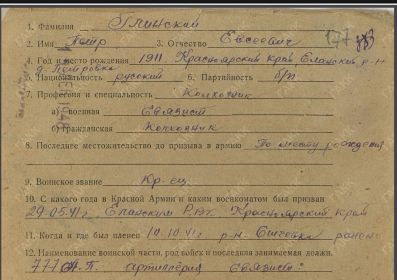 1. Фамилия Глинский
177
2. Имя Петр 3. Отчество Евсеевич
4. Год и место рождения 1911 Красноярский край Еланский р-н
д. Петровка
5. Национальность русский 6. Партийность б/п
7. Профессия и специальность Колхозник
а) военная Связист
б) гражданская Колхозник
8. Последнее местожительство до призыва в армию По месту рождения
9. Воинское звание Кр-ец
10. С какого года в Красной Армии и каким военкоматом был призван
29.05.41г. Еланским РВК Красноярский край
11. Когда и где был пленен 10.10.41г р-н. Сычевка ранен
12. Наименование воинской части, род войск и последняя занимаемая должн.
777 А.П. артиллерия Связист